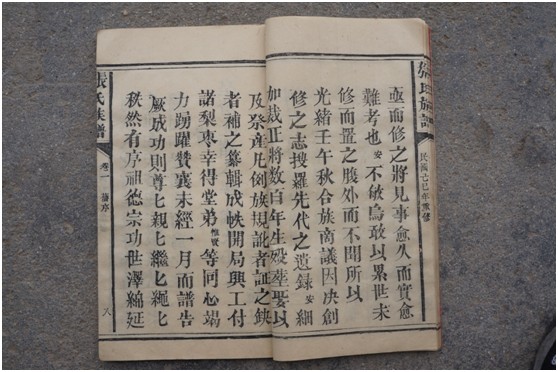 張氏族譜
民國己巳年重修
亟而修之將見事愈久而實愈
難考也安不敏烏敢以累世未
修而置之膜外而不聞所以
光緒壬午秋合族商議因决創
修之志搜羅先代之遺錄安細
加裁正將數百年生歿葬娶以
及發產凡例族規訛者証之缺
者補之纂輯成帙開局興工付
諸梨棗幸得堂弟惟賢等同心竭
力踴躍贊襄未經一月而譜告
厥成功則尊匕親匕繼匕繩匕
秩然有序祖德宗功世澤綿延
張氏族譜
卷一
舊序
八